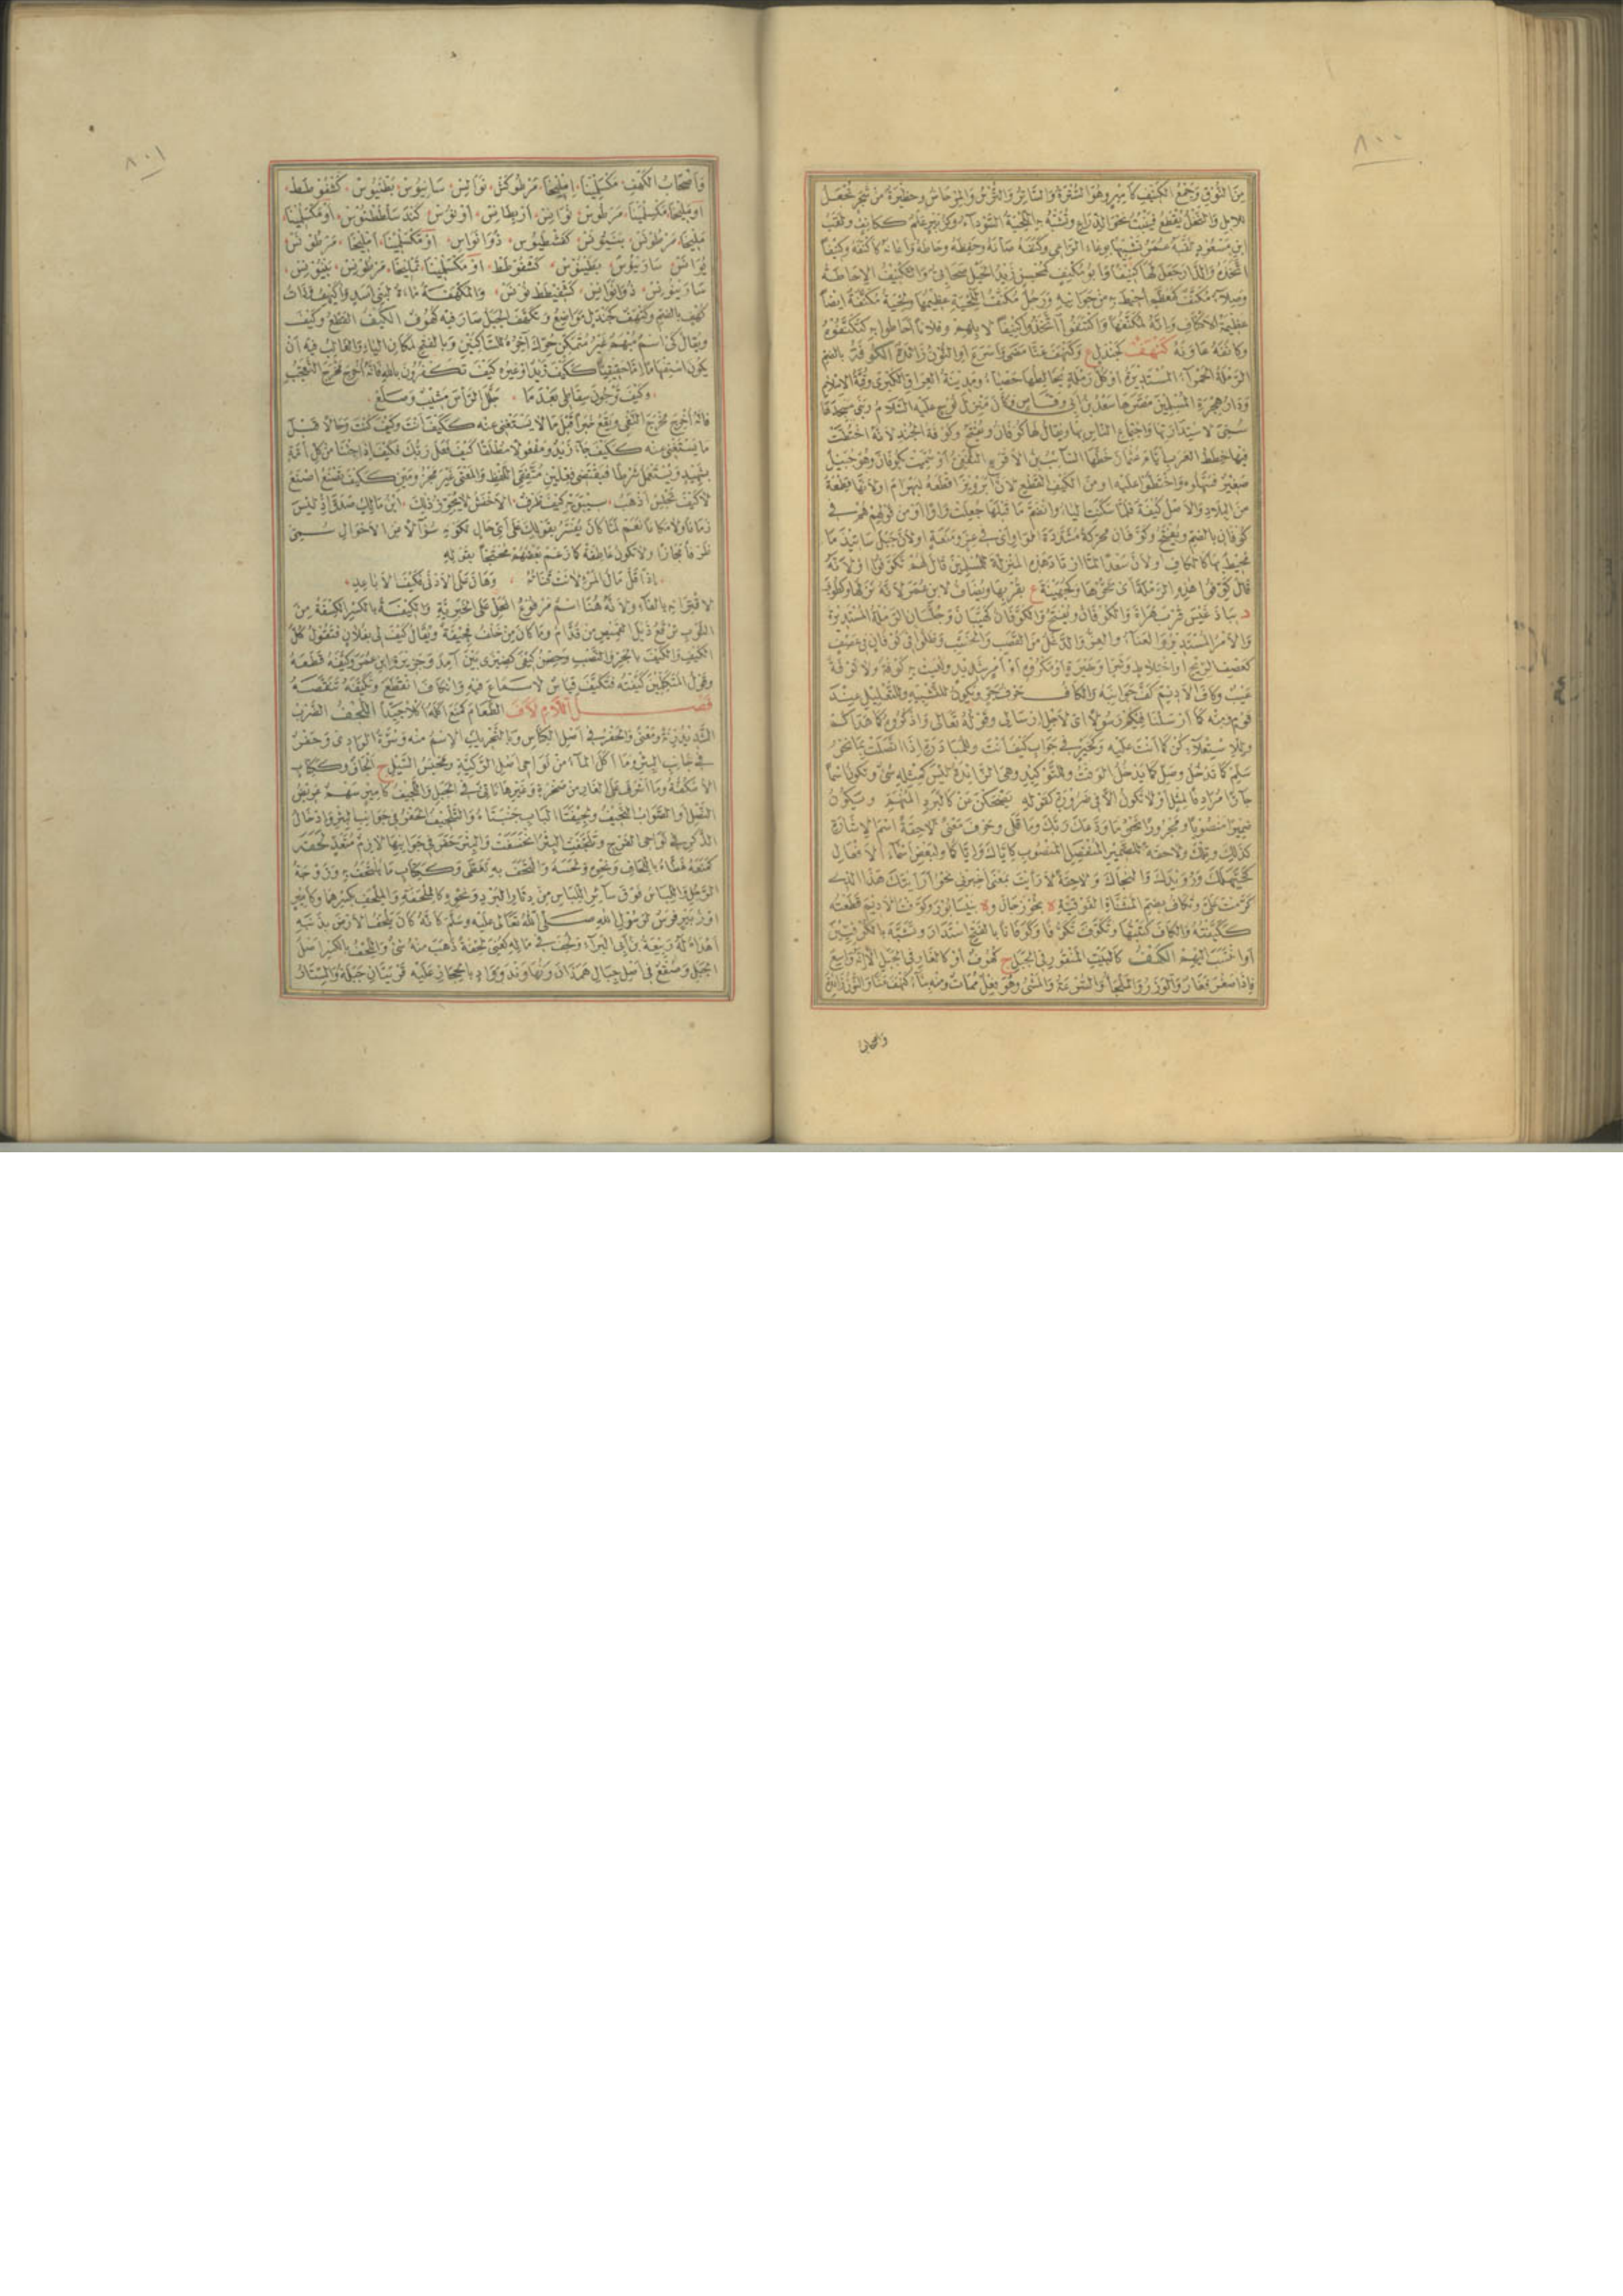 ٨٠٠
من النوق وجمع الكنيف كأمير وهو السترة والساتر والترس والمرحاض وحظيرة من شجر تجعل
للإبل والنخل يقطع فينبت نحو الذراع وتشبه به اللحية السوداء وكزبير علم ككانف ولقب
ابن مسعود لقبه عمر تشبيها بوعاء الراعي وكنفه صانه وحفظه وحاطه وأعانه كأكنفه وكنيفا
اتخذه والدار جعل لها كنيفا وأبو مكنف كمحسن زيد الخيل صحابي والتكنيف الإحاطة
وصلاء مكنف كمعظم أحيط به من جوانبه ورجل مكنف اللحية عظيمها ولحية مكنفة أيضا
عظيمة الأكناف وإنه لمكنفها واكتنفوا اتخذوا كنيفا لإبلهم وفلانا أحاطوا به كتكنفوه
وكانفه عاونه كنهف كجندل ع وكنهف عنا مضى وأسرع أو النون زائدة الكوفة بالضم
الرملة الحمراء المستديرة أو كل رملة يخالطها حصباء ومدينة العراق الكبرى وقبة الإسلام
ودار هجرة المسلمين مصرها سعد بن أبي وقاص وكان منزل نوح عليه السلام وبنى مسجدها
سمي لاستدارتها واجتماع الناس بها ويقال لها كوفان ويفتح وكوفة الجند لأنه اختطت
فيها خطط العرب أيام عثمان خططها السائب بن الأقرع الثقفي أو سميت بكوفان وهو جبيل
صغير فسهلوه واختطوا عليه أو من الكيف القطع لأن أبرويز أقطعه لبهرام أو لأنها قطعة
من البلاد والأصل كيفة فلما سكنت الياء وانضم ما قبلها جعلت واوا أو من قولهم هم في
كوفان بالضم ويفتح وكوفان محركة مشددة الواو أي في عز ومنعة أو لأن جبل ساتيدما
محيط بها كالكاف أو لأن سعدا لما ارتاد هذه المنزلة للمسلمين قال لهم تكوفوا أو لأنه
قال كوفوا هذه الرملة أي نحوها وكجهينة ع بقربها ويضاف لابن عمر لأنه نزلها وكطوبى
د بباذغيس قرب هراة والكوفان ويفتح والكوفان كهيبان وجلسان الرملة المستديرة
والأمر المستدير والعناء والعز والدغل من القصب والخشب وظلوا في كوفان في عصف
كعصف الريح أو اختلاط وشر أو حيرة أو مكروه أو أمر شديد وليست به كوفة ولا توفة
عيب وكاف الأديم كف جوانبه والكاف حرف جر ويكون للتشبيه وللتعليل عند
قوم ومنه كما أرسلنا فيكم رسولا أي لأجل إرسالي وقوله تعالى واذكروه كما هداكم
وللاستعلاء كن كما أنت عليه وكخير في جواب كيف أنت وللمبادرة إذا اتصلت بما نحو
سلم كما تدخل وصل كما يدخل الوقت وللتوكيد وهي الزائدة ليس كمثله شيء وتكون اسما
جارا مرادفا لمثل أو لا تكون إلا في ضرورة كقوله يضحكن عن كالبرد المنهم وتكون
ضميرا منصوبا ومجرورا نحو ما ودعك ربك وما قلى وحرف معنى لاحقة اسم الإشارة
كذلك وتلك ولاحقة للضمير المنفصل المنصوب كإياك وإياكما ولبعض أسماء الأفعال
كحيهلك ورويدك والنجاك ولاحقة لأرأيت بمعنى أخبرني نحو أرأيتك هذا الذي
كرمت علي وتكاف بضم المثناة الفوقية ة بجوزجان وة بنيسابور وكوفت الأديم قطعته
ككيفته والكاف كتبتها وتكوف تكوفا وكوفانا بالفتح استدار وتشبه بالكوفيين
أو انتسب إليهم الكهف كالبيت المنقور في الجبل ج كهوف أو كالغار في الجبل إلا أنه واسع
فإذا صغر فغار والوزر والملجأ والسرعة والمشي وهو فعل ممات ومنه بناء كنهف عنا والنون زائدة
وأصحاب
٨٠١
وأصحاب الكهف مكسلينا، إمليخا، مرطوكش، نوالس، سانيوس، بطنيوس، كشفوطط،
أو مليخا، مكسلينا، مرطوس، نوانس، أربطانس، أونوس، كندسلططنوس، أو مكسلينا،
مليخا، مرطونس، ينيونس، كفشطيوس، ذونوانس، أو مكسلينا، أمليخا، مرطونس،
يوانس، سارينوس، بطنيوس، كشفوطط، أو مكسلينا، يمليخا، مرطونس، ينيونس،
سارينوس، ذونوانس، كشفيطط نونس، والمكهفة ماءة لبني أسد وأكيهف وذات
كهف بالضم وكنهف كجندل مواضع وتكهف الجبل صار فيه كهوف الكيف القطع وكيف
ويقال كي اسم مبهم غير متمكن حرك آخره للساكنين وبالفتح لمكان الياء والغالب فيه أن
يكون استفهاما إما حقيقيا ككيف زيد أو غيره كيف تكفرون بالله فإنه أخرج مخرج التعجب
وكيف ترجون سقاطي بعدما ، جلل الرأس مشيب وصلع،
فإنه أخرج مخرج النفي ويقع خبرا قبل ما لا يستغنى عنه ككيف أنت وكيف كنت وحالا قبل
ما يستغنى عنه ككيف جاء زيد ومفعولا مطلقا كيف فعل ربك فكيف إذا جئنا من كل أمة
بشهيد ويستعمل شرطا فيقتضي فعلين متفقي اللفظ والمعنى غير مجزومين ككيف تصنع أصنع
لا كيف تجلس أذهب، سيبويه كيف ظرف، الأخفش لا يجوز ذلك، ابن مالك صدق إذ ليس
زمانا ولا مكانا نعم لما كان يفسر بقولك على أي حال لكونه سؤالا عن الأحوال سمي
ظرفا مجازا ولا تكون عاطفة كما زعم بعضهم محتجا بقوله
إذا قل مال المرء لانت قناته ، وهان على الأدنى فكيف الأباعد،
لاقترانه بالفاء ولأنه هنا اسم مرفوع المحل على الخبرية والكيفة بالكسر الكسفة من
الثوب ترقع ذيل القميص من قدام وما كان من خلف فحيفة ويقال كيف لي بفلان فتقول كل
الكيف والكيف بالجر والنصب وحصن كيفى كضيزى بين آمد وجزيرة ابن عمر وكيفه قطعه
وقول المتكلمين كيفته فتكيف قياس لا سماع فيه وانكاف انقطع وتكيفه تنقصه
فصل اللام لأف الطعام كمنع أكله أكلا جيدا اللجف الضرب
الشديد زنة ومعنى والحفر في أصل الكناس وبالتحريك الاسم منه وسرة الوادي وحفر
في جانب البئر وما أكل الماء من نواحي أصل الركية ومحبس السيل ج ألجاف وككتاب
الأسكفة وما أشرف على الغار من صخرة وغيرها ناتئ في الجبل واللجيف كأمير سهم عريض
النصل أو الصواب النجيف ولجيفتا الباب جنبتاه والتلجيف الحفر في جوانب البئر وإدخال
الذكر في نواحي الفرج وتلجفت البئر انخسفت والبئر حفر في جوانبها لازم متعد لحفه
كمنعه غطاه باللحاف ونحوه ولحسه والتحف به تغطى وككتاب ما يلتحف به وزوجة
الرجل واللباس فوق سائر اللباس من دثار البرد ونحوه كالملحفة والملحف بكسرهما وكأمير
أو زبير فرس لرسول الله صلى الله تعالى عليه وسلم كأنه كان يلحف الأرض بذنبه
أهداه له ربيعة بن أبي البراء ولحف في ماله كعني لحفة ذهب منه شيء واللحف بالكسر أصل
الجبل وصقع في أصل جبال همذان ونهاوند وواد بالحجاز عليه قريتان جبلة والستار